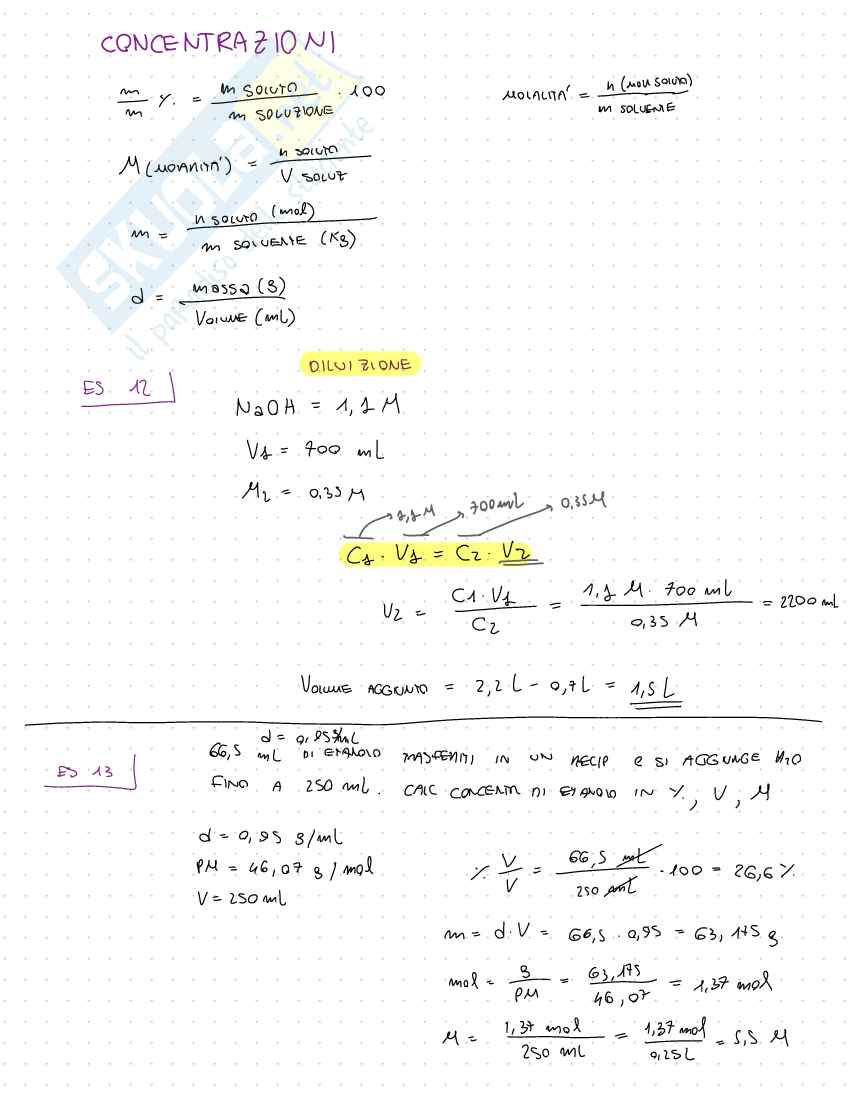 CONCENTRAZIONI
m/m % = m SOLUTO / m SOLUZIONE · 100
MOLALITÀ = n (MOLI SOLUTO) / m SOLVENTE
M (MOLARITÀ) = n SOLUTO / V SOLUZ
m = n SOLUTO (mol) / m SOLVENTE (Kg)
d = massa (g) / VOLUME (mL)
SKUOLA.net
il paradiso dello studente
DILUIZIONE
ES 12
NaOH = 1,1 M
V1 = 700 mL
M2 = 0,35 M
1,1 M 700 mL 0,35 M
C1 · V1 = C2 · V2
V2 = C1 · V1 / C2 = 1,1 M · 700 mL / 0,35 M = 2200 mL
VOLUME AGGIUNTO = 2,2 L - 0,7 L = 1,5 L
d = 0,95 g/mL
ES 13
66,5 mL DI ETANOLO TRASFERITI IN UN RECIP e SI AGGIUNGE H2O
FINO A 250 mL. CALC CONCENTR DI ETANOLO IN %, V, M
d = 0,95 g/mL
PM = 46,07 g/mol
V = 250 mL
% V/V = 66,5 mL / 250 mL · 100 = 26,6 %
m = d · V = 66,5 · 0,95 = 63,175 g
mol = g / PM = 63,175 / 46,07 = 1,37 mol
M = 1,37 mol / 250 mL = 1,37 mol / 0,25 L = 5,5 M